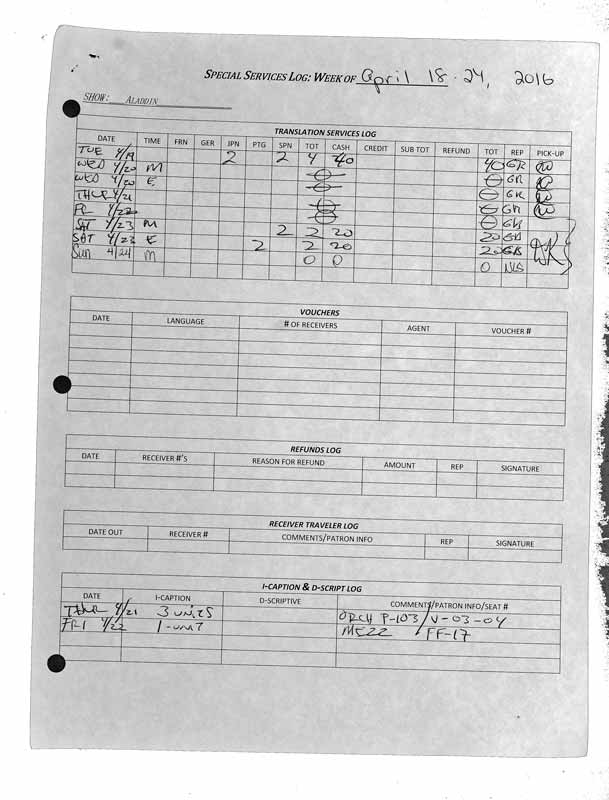 SPECIAL SERVICES LOG: WEEK OF April 18-24, 2016
SHOW: ALADDIN
TRANSLATION SERVICES LOG
DATE TIME FRN GER JPN PTG SPN TOT CASH CREDIT SUB TOT REFUND TOT REP PICK-UP
TUE 4/19 2 2 4 40 40 GR
WED 4/20 M GR
WED 4/20 E GR
THUR 4/21 GR
FR 4/22 GR
SAT 4/23 M 2 2 20 20 GR
SAT 4/23 E 2 2 20 20 GR
Sun 4/24 M 0 0 0
VOUCHERS
DATE LANGUAGE # OF RECEIVERS AGENT VOUCHER #
REFUNDS LOG
DATE RECEIVER #'S REASON FOR REFUND AMOUNT REP SIGNATURE
RECEIVER TRAVELER LOG
DATE OUT RECEIVER # COMMENTS/PATRON INFO REP SIGNATURE
I-CAPTION & D-SCRIPT LOG
DATE I-CAPTION D-SCRIPTIVE COMMENTS/PATRON INFO/SEAT #
THUR 4/21 3 UNITS ORCH P-103/V-03-04
FRI 4/22 1-UNIT MEZZ FF-17